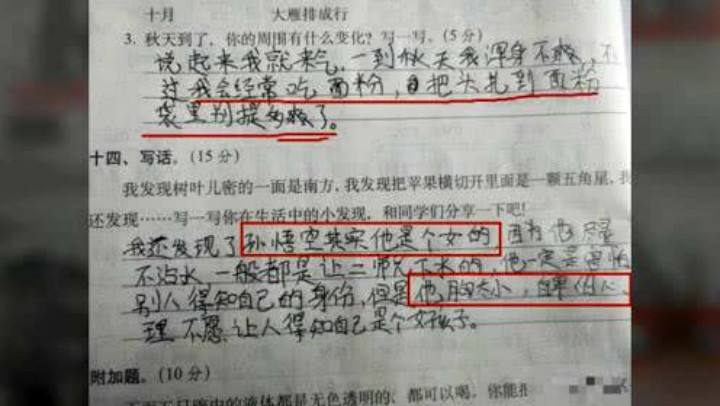 十月 大雁排成行
3. 秋天到了，你的周围有什么变化？写一写。(5分)
说起来我就来气，一到秋天我浑身不爽，不
过我会经常吃面粉，自把头扎到面粉
袋里别提多爽了。
十四、写话。(15分)
我发现树叶儿密的一面是南方，我发现把苹果横切开里面是一颗五角星，我
还发现……写一写你在生活中的小发现，和同学们分享一下吧！
我还发现了孙悟空其实他是个女的，因为他尽量
不沾水，一般都是让二师兄下水的，他一定是害怕
别人得知自己的身份，但是他胸太小，自卑心
理不愿让人得知自己是个女孩子。
附加题。(10分)
无色透明的，都可以喝，你能